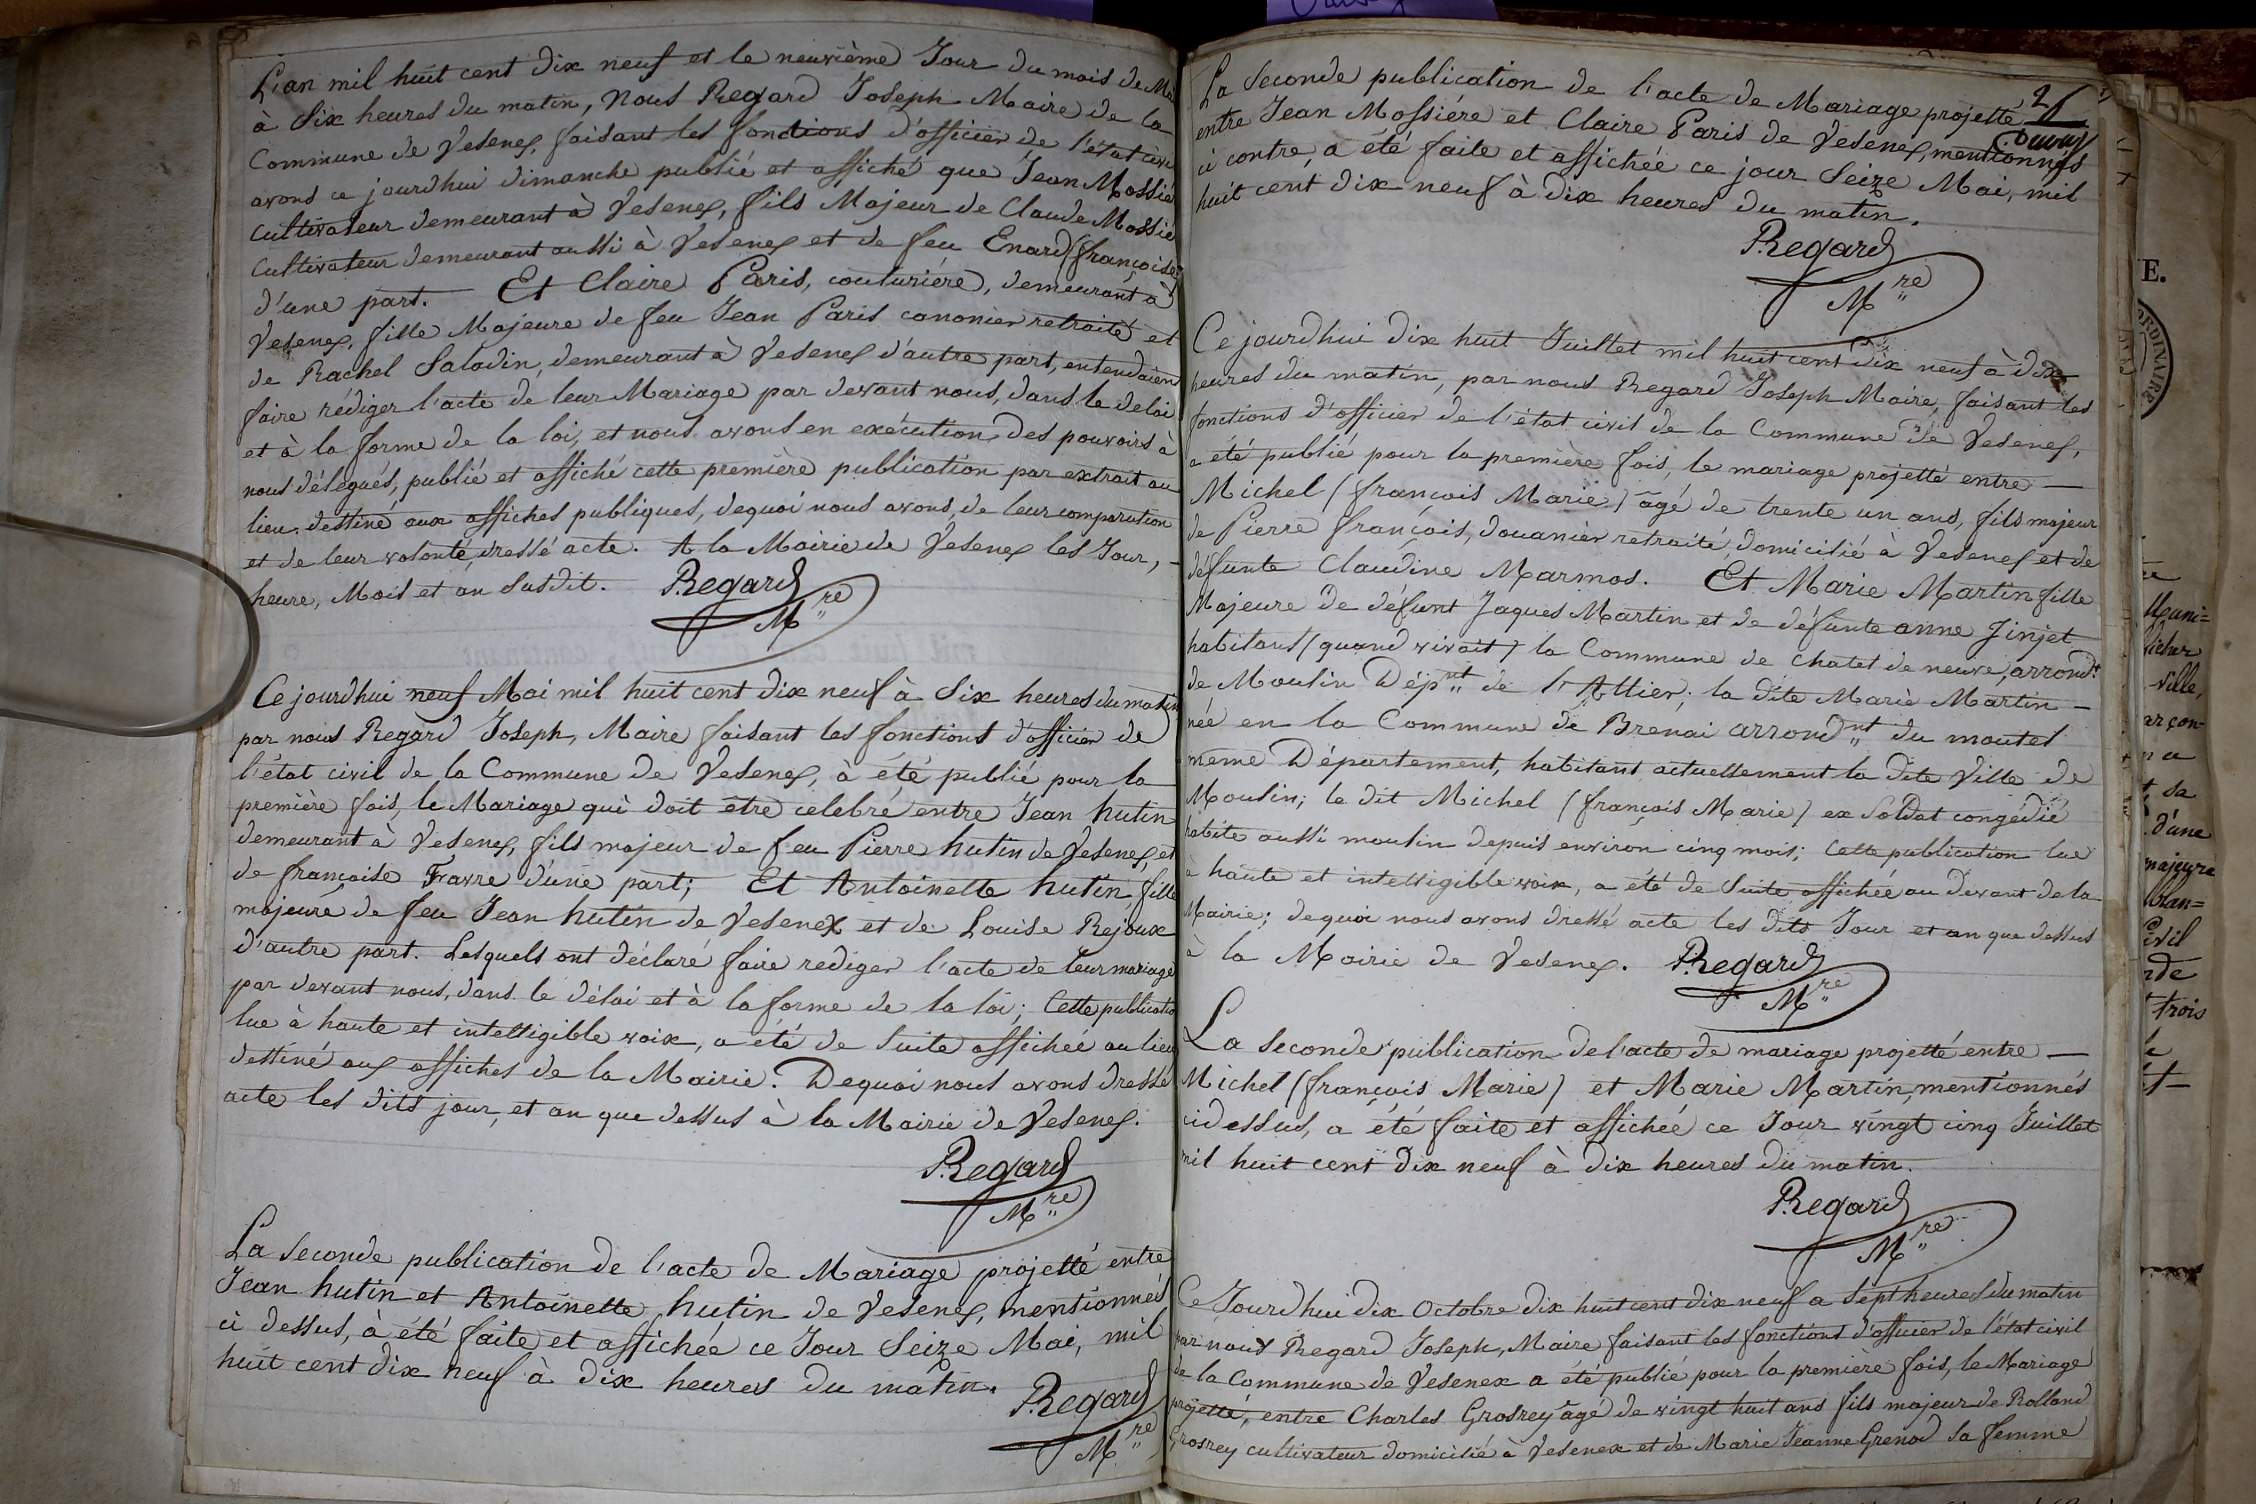 L'an mil huit cent dix neuf et le neuvième Jour du mois de Mai
à Six heures du matin, Nous Regard Joseph Maire de la
Commune de Vesenex, faisant les fonctions d'officier de l'état civil
avons ce jourdhui dimanche publié et affiché que Jean Mossiér
cultivateur demeurant à Vesenex, fils Majeur de Claude Mossiér
cultivateur demeurant aussi à Vesenex et de feu Enard (françoise)
d'une part. Et Claire Paris, couturiére, demeurant à
Vesenex, fille Majeure de feu Jean Paris canonier retraité et
de Rachel Saladin, demeurant à Vesenex d'autre part, entendaient
faire rédiger l'acte de leur Mariage par devant nous, dans le delai
et à la forme de la loi, et nous avons en exécution des pouvoirs à
nous délegués, publié et affiché cette première publication par extrait au
lieu destiné aux affiches publiques, dequoi nous avons, de leur comparution
et de leur volonté, dressé acte. A la Mairie de Vésenex les Jour, -
heure, Mois et an susdit. Regard
M"re
Ce jourdhui neuf Mai mil huit cent dix neuf à Six heures du matin
par nous Regard Joseph, Maire faisant les fonctions d'officier de
l'état civil de la Commune de Vesenex, à été publié pour la
première fois, le Mariage qui doit être celebré entre Jean hutin
demeurant à Vesenex, fils majeur de feu Pierre hutin de Vesenex, et
de françoise Favre d'une part; Et Antoinette hutin fille
majeure de feu Jean hutin de Vesenex et de Louise Rejoux
d'autre part. Lesquels ont déclaré faire rediger l'acte de leur mariage
par devant nous, dans le délai et à la forme de la loi; Cette publication
lue à haute et intelligible voix, a été de suite affichée au lieu
destiné aux affiches de la Mairie. Dequoi nous avons dressé
acte les dits jour, et an que dessus à la Mairie de Vesenex.
Regard
M"re
La seconde publication de l'acte de Mariage projetté entre
Jean hutin et Antoinette hutin de Vesenex, mentionnés
ci dessus, à été faite et affichée ce Jour Seize Mai, mil
huit cent dix neuf à dix heures du matin.
Regard
M"re
2
La Seconde publication de l'acte de Mariage projetté
entre Jean Mossiére et Claire Paris de Vesenex, mentionnés
ci contre, a été faite et affichée ce jour Seize Mai, mil
huit cent dix neuf à dix heures du matin.
Regard
M"re
Ce jourdhui dix huit Juillet mil huit cent dix neuf à dix
heures du matin, par nous Regard Joseph Maire, faisant les
fonctions d'officier de l'état civil de la Commune de Vesenex,
a été publié pour la première fois, le mariage projetté entre —
Michel (françois Marie) âgé de trente un ans, fils majeur
de Pierre françois, douanier retraité, domicilié à Vesenex et de
défunte Claudine Marmos. Et Marie Martin fille
Majeure de défunt Jaques Martin et de défunte anne Jinjet
habitans (quand vivait) la Commune de chatel de neuve, arrondt
de Moulin Dép"nt de l'Allier; la dite Marie Martin —
née en la Commune de Brenai arrond"nt du montet
même Département, habitant actuellement la dite Ville de
Moulin; le dit Michel (françois Marie) ex Soldat congédié
habite aussi moulin depuis environ cinq mois; Cette publication lue
à haute et intelligible voix, a été de suite affichée au devant de la
Mairie; dequoi nous avons dressé acte les dits Jour et an que dessus
à la Mairie de Vesenex. Regard
M"re
La Seconde publication de l'acte de mariage projetté entre —
Michel (françois Marie) et Marie Martin, mentionnés
cidessus, a été faite et affichée ce Jour vingt cinq Juillet
mil huit cent dix neuf à dix heures du matin.
Regard
M"re
Ce Jourdhui dix Octobre dix huit cent dix neuf a Sept heures du matin
par nous Regard Joseph, Maire faisant les fonctions d'officier de l'état civil
de la Commune de Vesenex a été publié pour la première fois, le Mariage
projetté, entre Charles Grosrey âgé de vingt huit ans fils majeur de Rolland
Grosrey cultivateur domicilié à Vesenex et de Marie Jeanne Grenod sa femme
E.
ORDINAIRE
ville,
d'une
majeure
trois